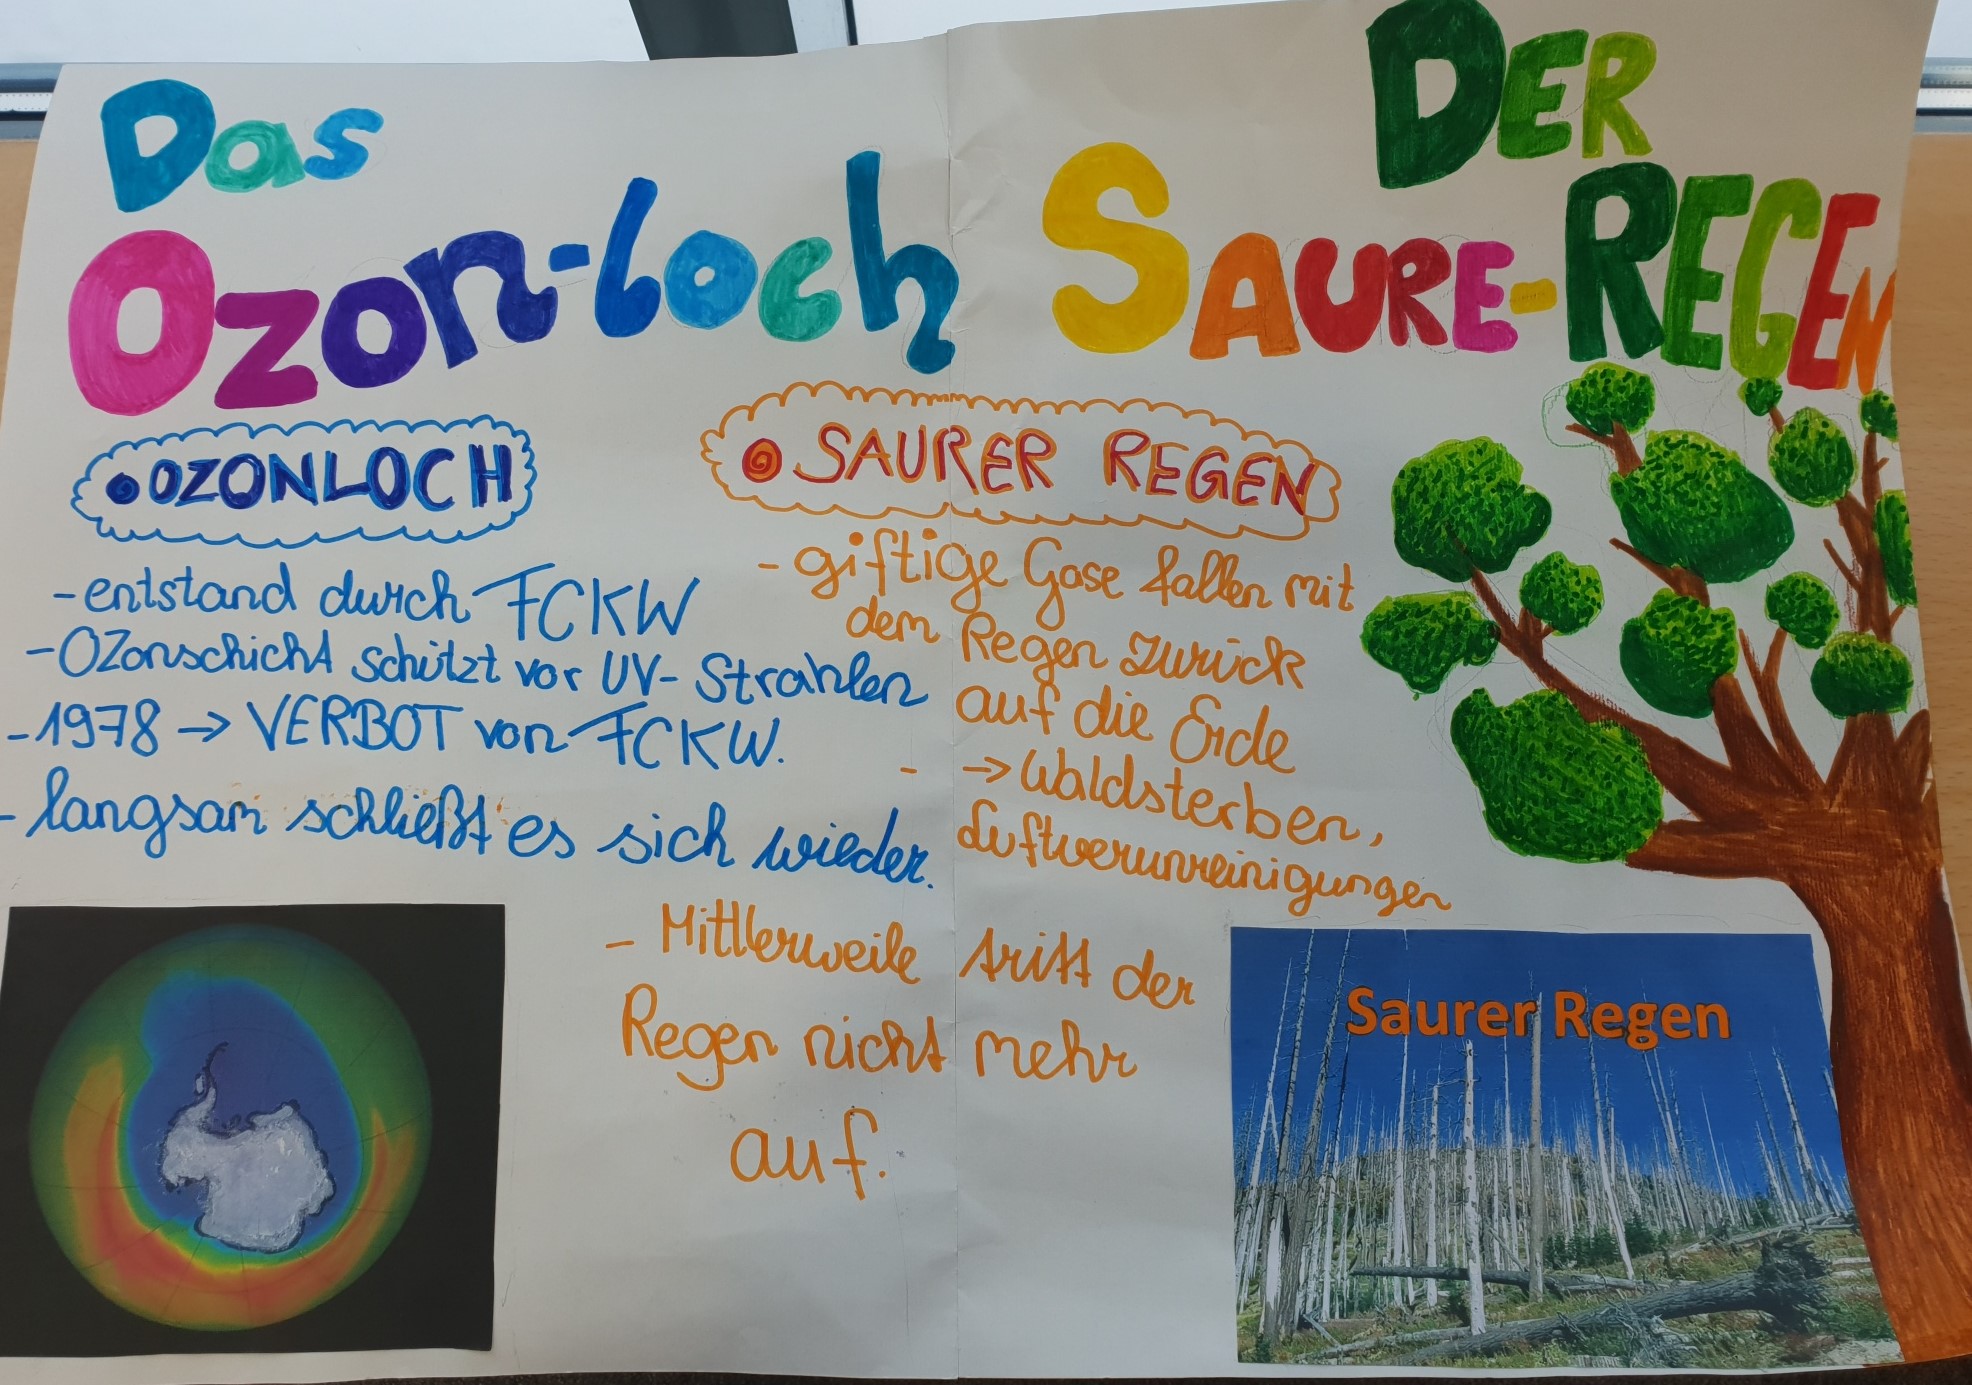 Das
Ozon-loch
DER
SAURE-REGEN
• OZONLOCH
- entstand durch FCKW
- Ozonschicht schützt vor UV- Strahlen
- 1978 → VERBOT von FCKW.
- langsam schließt es sich wieder.
• SAURER REGEN
- giftige Gase fallen mit
dem Regen zurück
auf die Erde
- → Waldsterben,
Luftverunreinigungen
- Mittlerweile tritt der
Regen nicht mehr
auf.
Saurer Regen